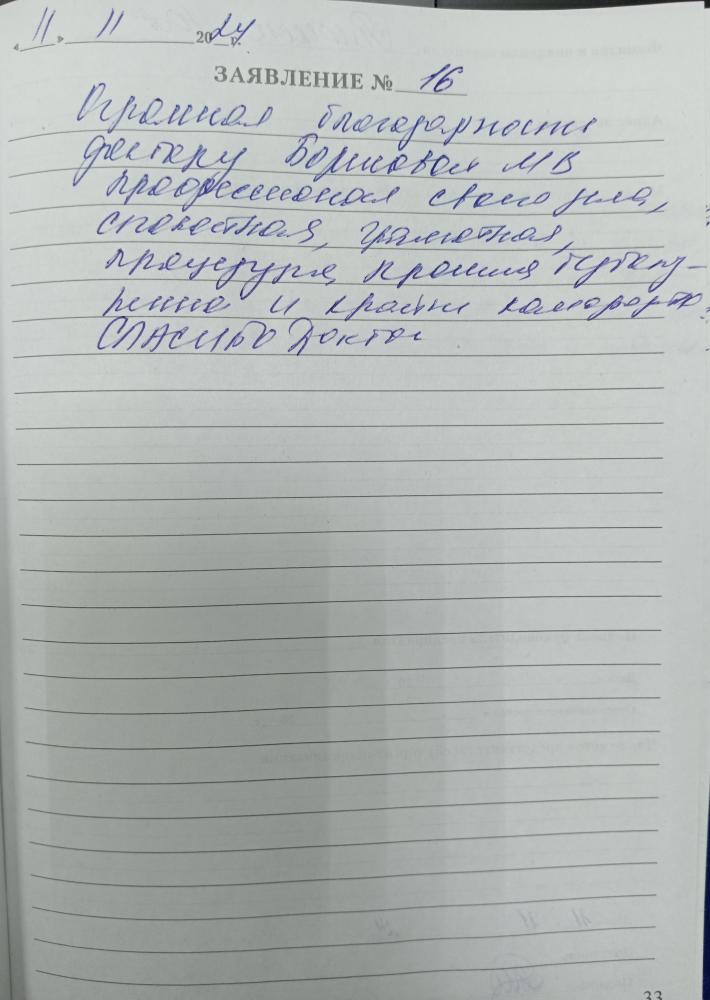 « 11 » 11 2024 г.
ЗАЯВЛЕНИЕ № 16
Огромная благодарность
доктору МВ
профессионал своего дела,
спокойная, грамотная,
процедура прошла
и крайне комфортно.
СПАСИБО Доктор
33